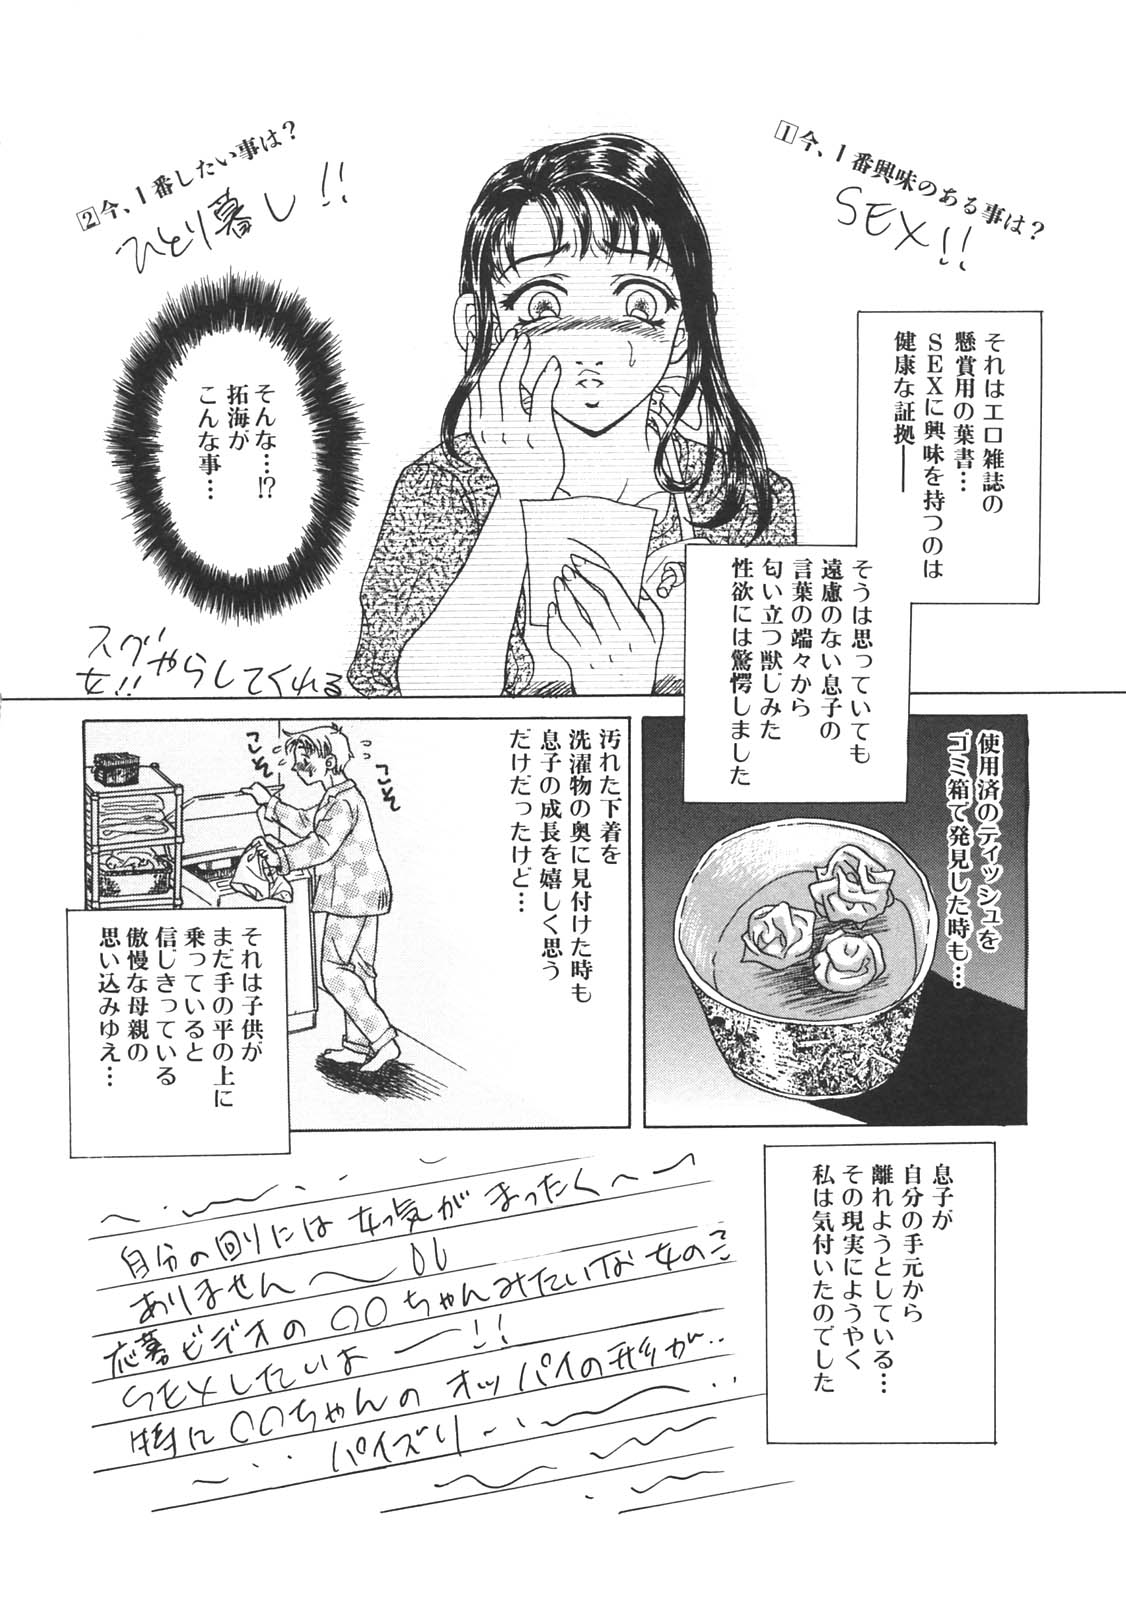 1今、1番興味のある事は?
SEX!!
2今、1番したい事は?
ひとり暮し!!
それはエロ雑誌の
懸賞用の葉書…
SEXに興味を持つのは
健康な証拠――
そんな…!?
拓海が
こんな事…
そうは思っていても
遠慮のない息子の
言葉の端々から
匂い立つ獣じみた
性欲には驚愕しました
スグやらしてくれる
女!!
使用済のティッシュを
ゴミ箱で発見した時も…
汚れた下着を
洗濯物の奥に見付けた時も
息子の成長を嬉しく思う
だけだったけど…
こそ
こそ
それは子供が
まだ手の平の上に
乗っていると
信じきっている
傲慢な母親の
思い込みゆえ…
息子が
自分の手元から
離れようとしている…
その現実にようやく
私は気付いたのでした
自分の回りには女っ気がまったく
ありません〜
応募ビデオの〇〇ちゃんみたいな女のこ
SEXしたいよー!!
特に〇〇ちゃんのオッパイの形が‥
パイズリ